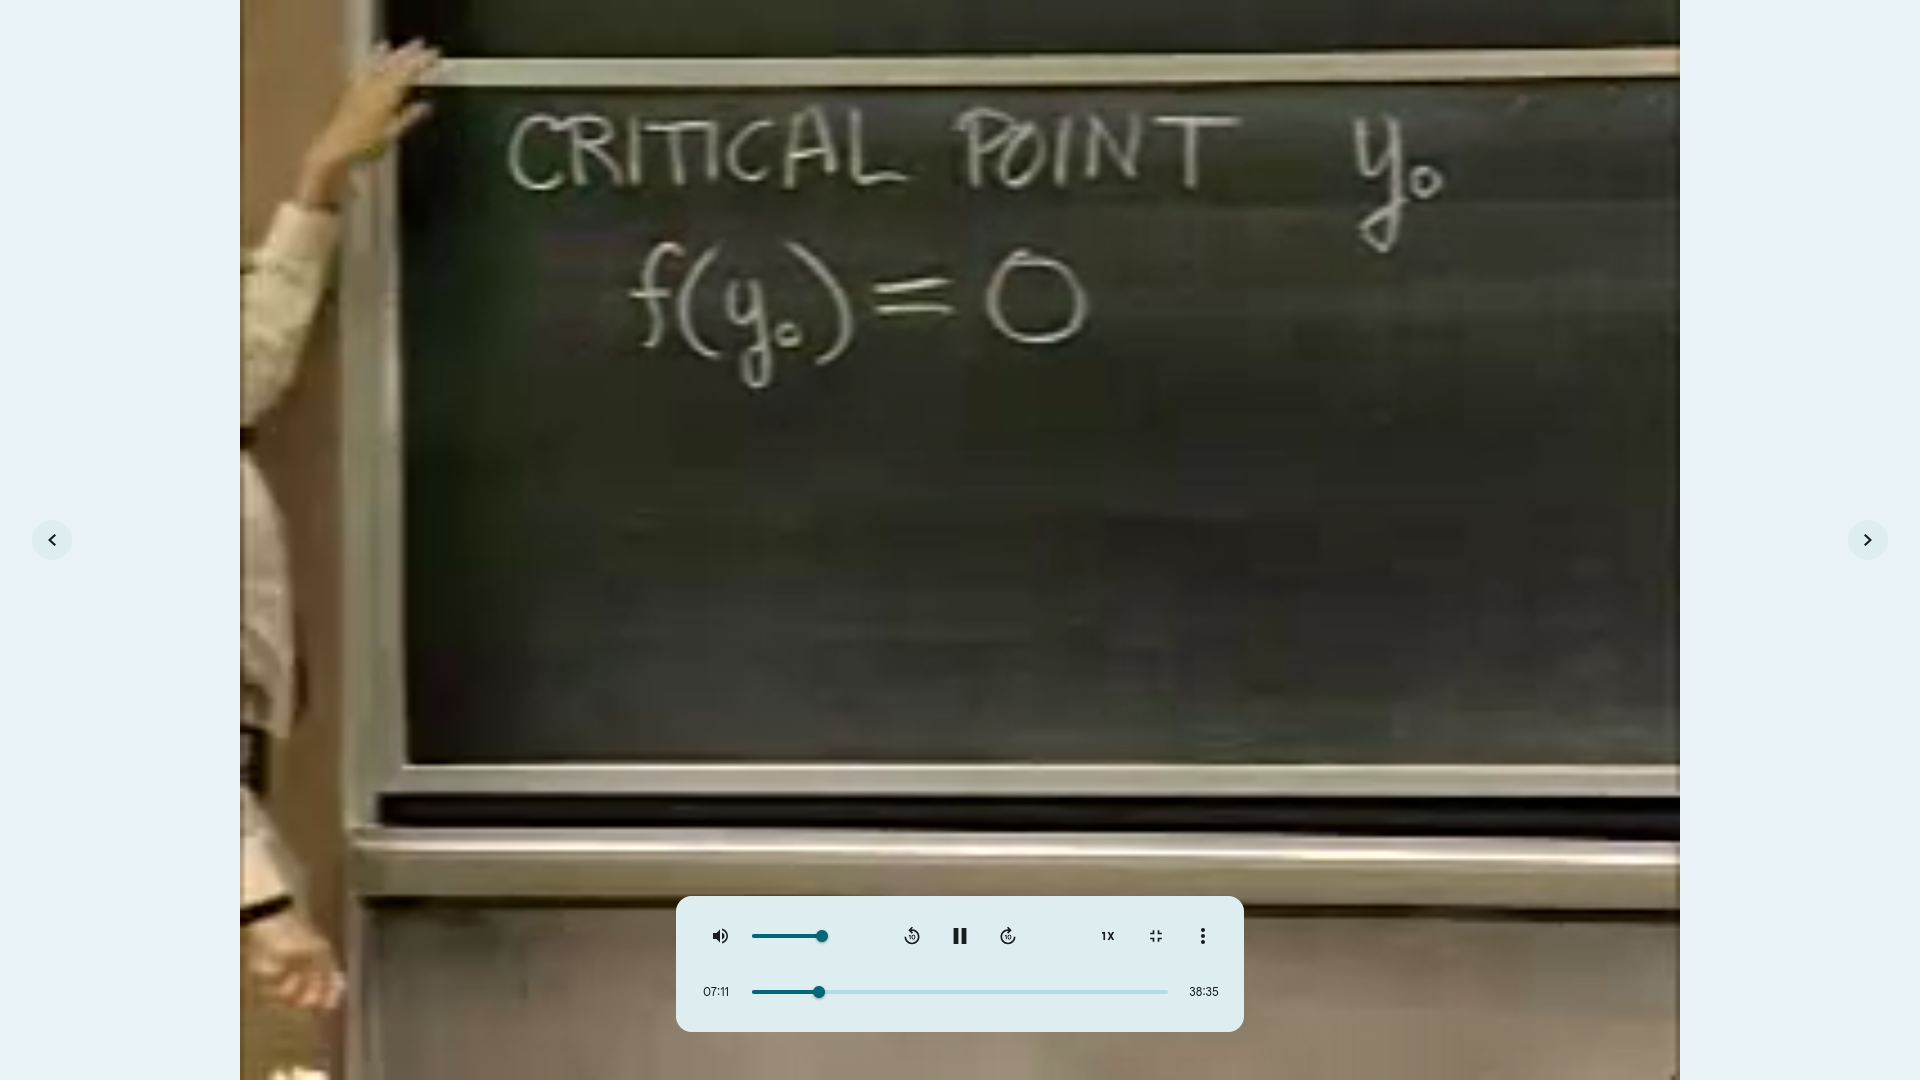 CRITICAL POINT y₀
f(y₀) = 0
10
10
1X
07:11
38:35